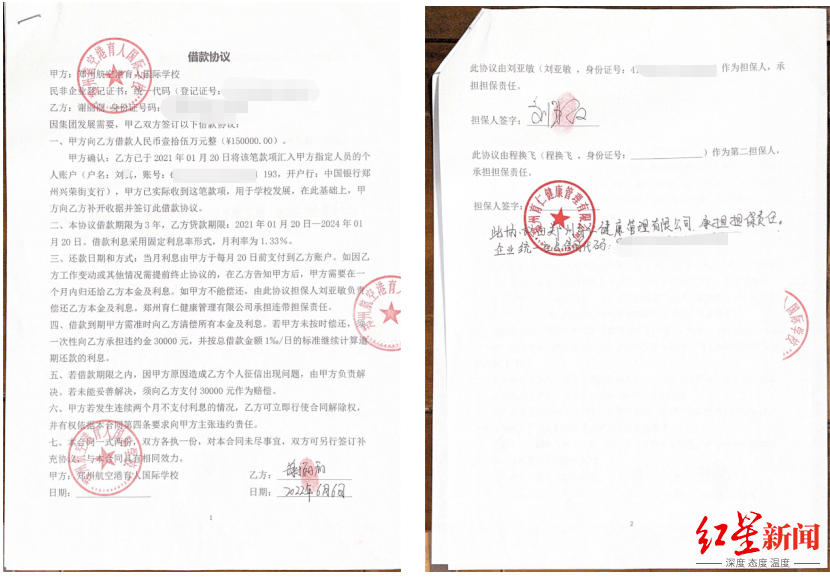 借款协议
甲方：郑州航空港育人国际学校
民非企业登记证书：统一代码（登记证号：
乙方：谢丽丽 身份证号码：
因集团发展需要，甲乙双方签订以下借款协议：
一、甲方向乙方借款人民币壹拾伍万元整（¥150000.00）。
甲方确认：乙方已于 2021 年 01 月 20 日将该笔款项汇入甲方指定人员的个
人账户（户名：刘
账号：6
193，开户行：中国银行郑
州兴荣街支行），甲方已实际收到这笔款项，用于学校发展，在此基础上，甲
方向乙方补开收据并签订此借款协议。
二、本协议借款期限为 3 年，乙方贷款期限：2021 年 01 月 20 日—2024 年 01
月 20 日。借款利息采用固定利息率形式，月利率为 1.33%。
三、还款日期和方式：当月利息由甲方于每月 20 日前支付到乙方账户。如因乙
方工作变动或其他情况需提前终止协议的，在乙方告知甲方后，甲方需要在一
个月内归还给乙方本金及利息。如甲方不能偿还，由此协议担保人刘亚敏负责
偿还乙方本金及利息，郑州育仁健康管理有限公司承担连带担保责任。
四、借款到期甲方需准时向乙方清偿所有本金及利息。若甲方未按时偿还，须
一次性向乙方承担违约金 30000 元，并按总借款金额 1‰/日的标准继续计算逾
期还款的利息。
五、若借款期限之内，因甲方原因造成乙方个人征信出现问题，由甲方负责解
决。若未能妥善解决，须向乙方支付 30000 元作为赔偿。
六、甲方若发生连续两个月不支付利息的情况，乙方可立即行使合同解除权，
并有权依据本合同第四条要求向甲方主张违约责任。
七、本合同一式两份，双方各执一份，对本合同未尽事宜，双方可另行签订补
充协议，与本合同具有相同效力。
甲方：郑州航空港育人国际学校
乙方：
日期：
日期：2022年6月6日
1
此协议由刘亚敏（刘亚敏 ，身份证号：4
作为担保人，承
担担保责任。
担保人签字：刘亚敏
此协议由程换飞（程换飞，身份证号：
）作为第二担保人，
承担担保责任。
担保人签字：
郑州育仁健康管理有限公司
此协议由郑州育仁健康管理有限公司承担担保责任。
企业统一社会信用代码：9
2
红星新闻
深度 态度 温度